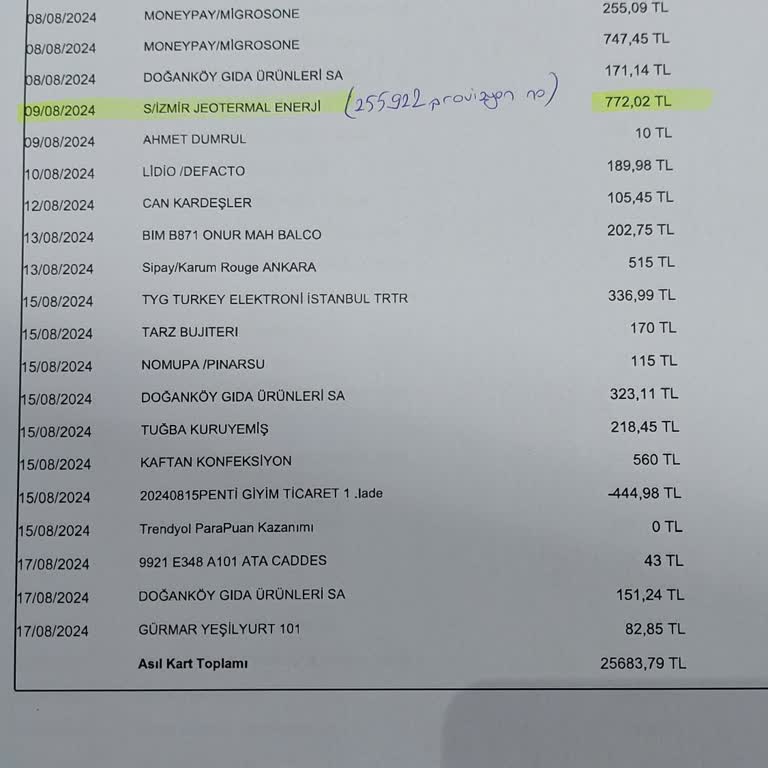 08/08/2024 MONEYPAY/MİGROSONE 255,09 TL
08/08/2024 MONEYPAY/MİGROSONE 747,45 TL
08/08/2024 DOĞANKÖY GIDA ÜRÜNLERİ SA 171,14 TL
09/08/2024 S/İZMİR JEOTERMAL ENERJİ (255922 provizyon no) 772,02 TL
09/08/2024 AHMET DUMRUL 10 TL
10/08/2024 LİDİO /DEFACTO 189,98 TL
12/08/2024 CAN KARDEŞLER 105,45 TL
13/08/2024 BIM B871 ONUR MAH BALCO 202,75 TL
13/08/2024 Sipay/Karum Rouge ANKARA 515 TL
15/08/2024 TYG TURKEY ELEKTRONİ İSTANBUL TRTR 336,99 TL
15/08/2024 TARZ BUJITERI 170 TL
15/08/2024 NOMUPA /PINARSU 115 TL
15/08/2024 DOĞANKÖY GIDA ÜRÜNLERİ SA 323,11 TL
15/08/2024 TUĞBA KURUYEMİŞ 218,45 TL
15/08/2024 KAFTAN KONFEKSİYON 560 TL
15/08/2024 20240815PENTİ GİYİM TİCARET 1 .Iade -444,98 TL
15/08/2024 Trendyol ParaPuan Kazanımı 0 TL
17/08/2024 9921 E348 A101 ATA CADDES 43 TL
17/08/2024 DOĞANKÖY GIDA ÜRÜNLERİ SA 151,24 TL
17/08/2024 GÜRMAR YEŞİLYURT 101 82,85 TL
Asıl Kart Toplamı 25683,79 TL